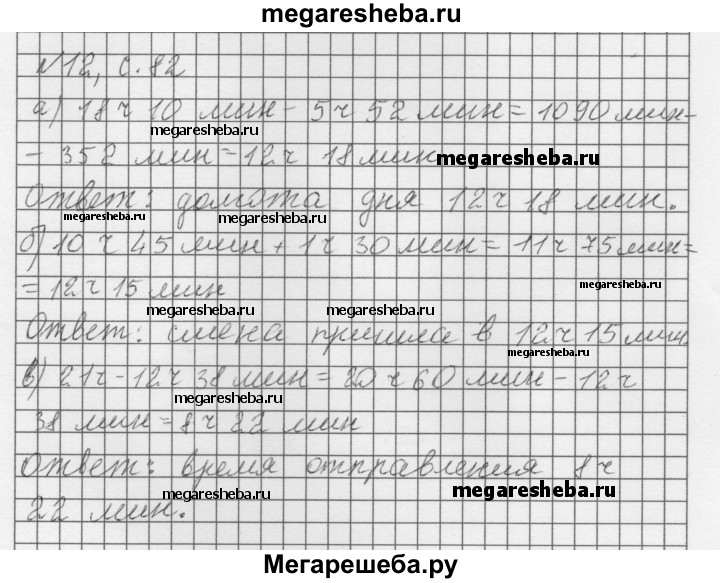 megaresheba.ru
№12, с. 82
а) 18 ч 10 мин - 5 ч 52 мин = 1090 мин -
megaresheba.ru
- 352 мин = 12 ч 18 мин
megaresheba.ru
Ответ: долгота дня 12 ч 18 мин.
megaresheba.ru
megaresheba.ru
б) 10 ч 45 мин + 1 ч 30 мин = 11 ч 75 мин =
megaresheba.ru
= 12 ч 15 мин
megaresheba.ru
megaresheba.ru
Ответ: смена пришла в 12 ч 15 мин.
megaresheba.ru
в) 21 ч - 12 ч 38 мин = 20 ч 60 мин - 12 ч
megaresheba.ru
38 мин = 8 ч 22 мин
Ответ: время отправления 8 ч
megaresheba.ru
megaresheba.ru
22 мин.
Мегарешеба.ру